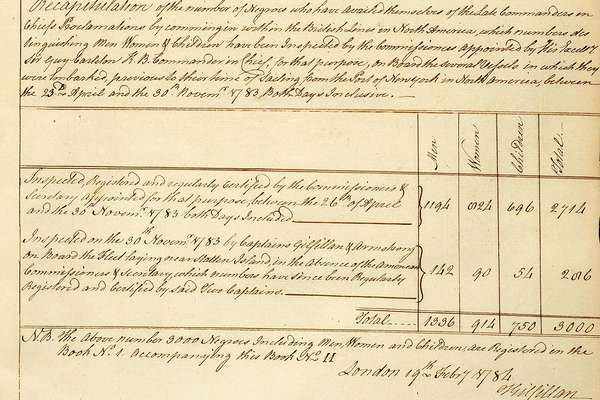 Recapitulation of the number of Negroes who have availed themselves of the Late Commanders in
Chiefs Proclamations by comming in within the British Lines in North America, which numbers dis
tinguishing Men Women & Children have been Inspected by the Commissioners appointed by His Excelly
Sir Guy Carleton K. B. Commander in Chief, for that purpose, on Board the several Vessels in which they
were embarked, previous to their time of Sailing from the Port of New York in North America, between
the 23d April and the 30th Novemr. 1783 Both Days Inclusive.
Men Women Children Total
Inspected, Registered and regularly Certified by the Commissioners &
Secretary appointed for that purpose, between the 26th of April
and the 30 Novemr. 1783 both Days Included 1194 824 696 2714
Inspected on the 30th Novemr. 1783 by Captains Gilfillan & Armstrong
on Board the Fleet laying near Staten Island, in the Absence of the American
Commissioners & Secretary, which numbers have since been Regularly
Registered and Certified by said Two Captains. 142 90 54 286
Total..... 1336 914 750 3000
N.B. The Above number 3000 Negroes Including Men, Women and Children, are Registered in the
Book No. 1. Accompanying this Book No. II
London 19th Febry 1784
Gilfillan